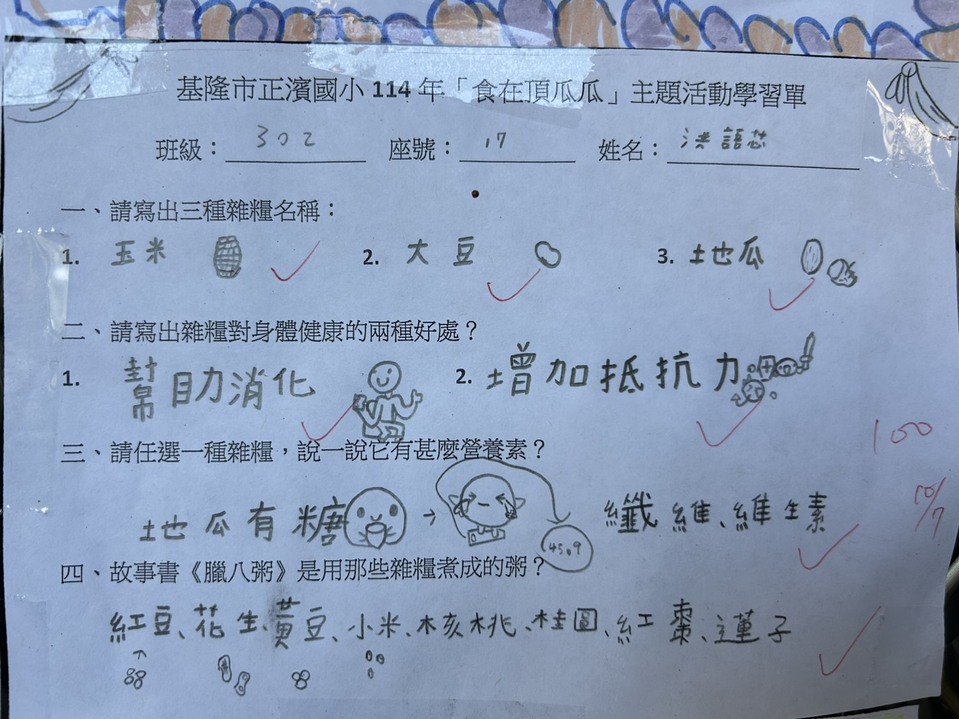 基隆市正濱國小 114 年「食在頂瓜瓜」主題活動學習單
班級：302 座號：17 姓名：洪語芯
一、請寫出三種雜糧名稱：
1. 玉米 2. 大豆 3. 土地瓜
二、請寫出雜糧對身體健康的兩種好處？
1. 幫助消化 2. 增加抵抗力
100
三、請任選一種雜糧，說一說它有甚麼營養素？
10/7
地瓜有糖 → 纖維、維生素
45.9
四、故事書《臘八粥》是用那些雜糧煮成的粥？
紅豆、花生、黃豆、小米、核桃、桂圓、紅棗、蓮子